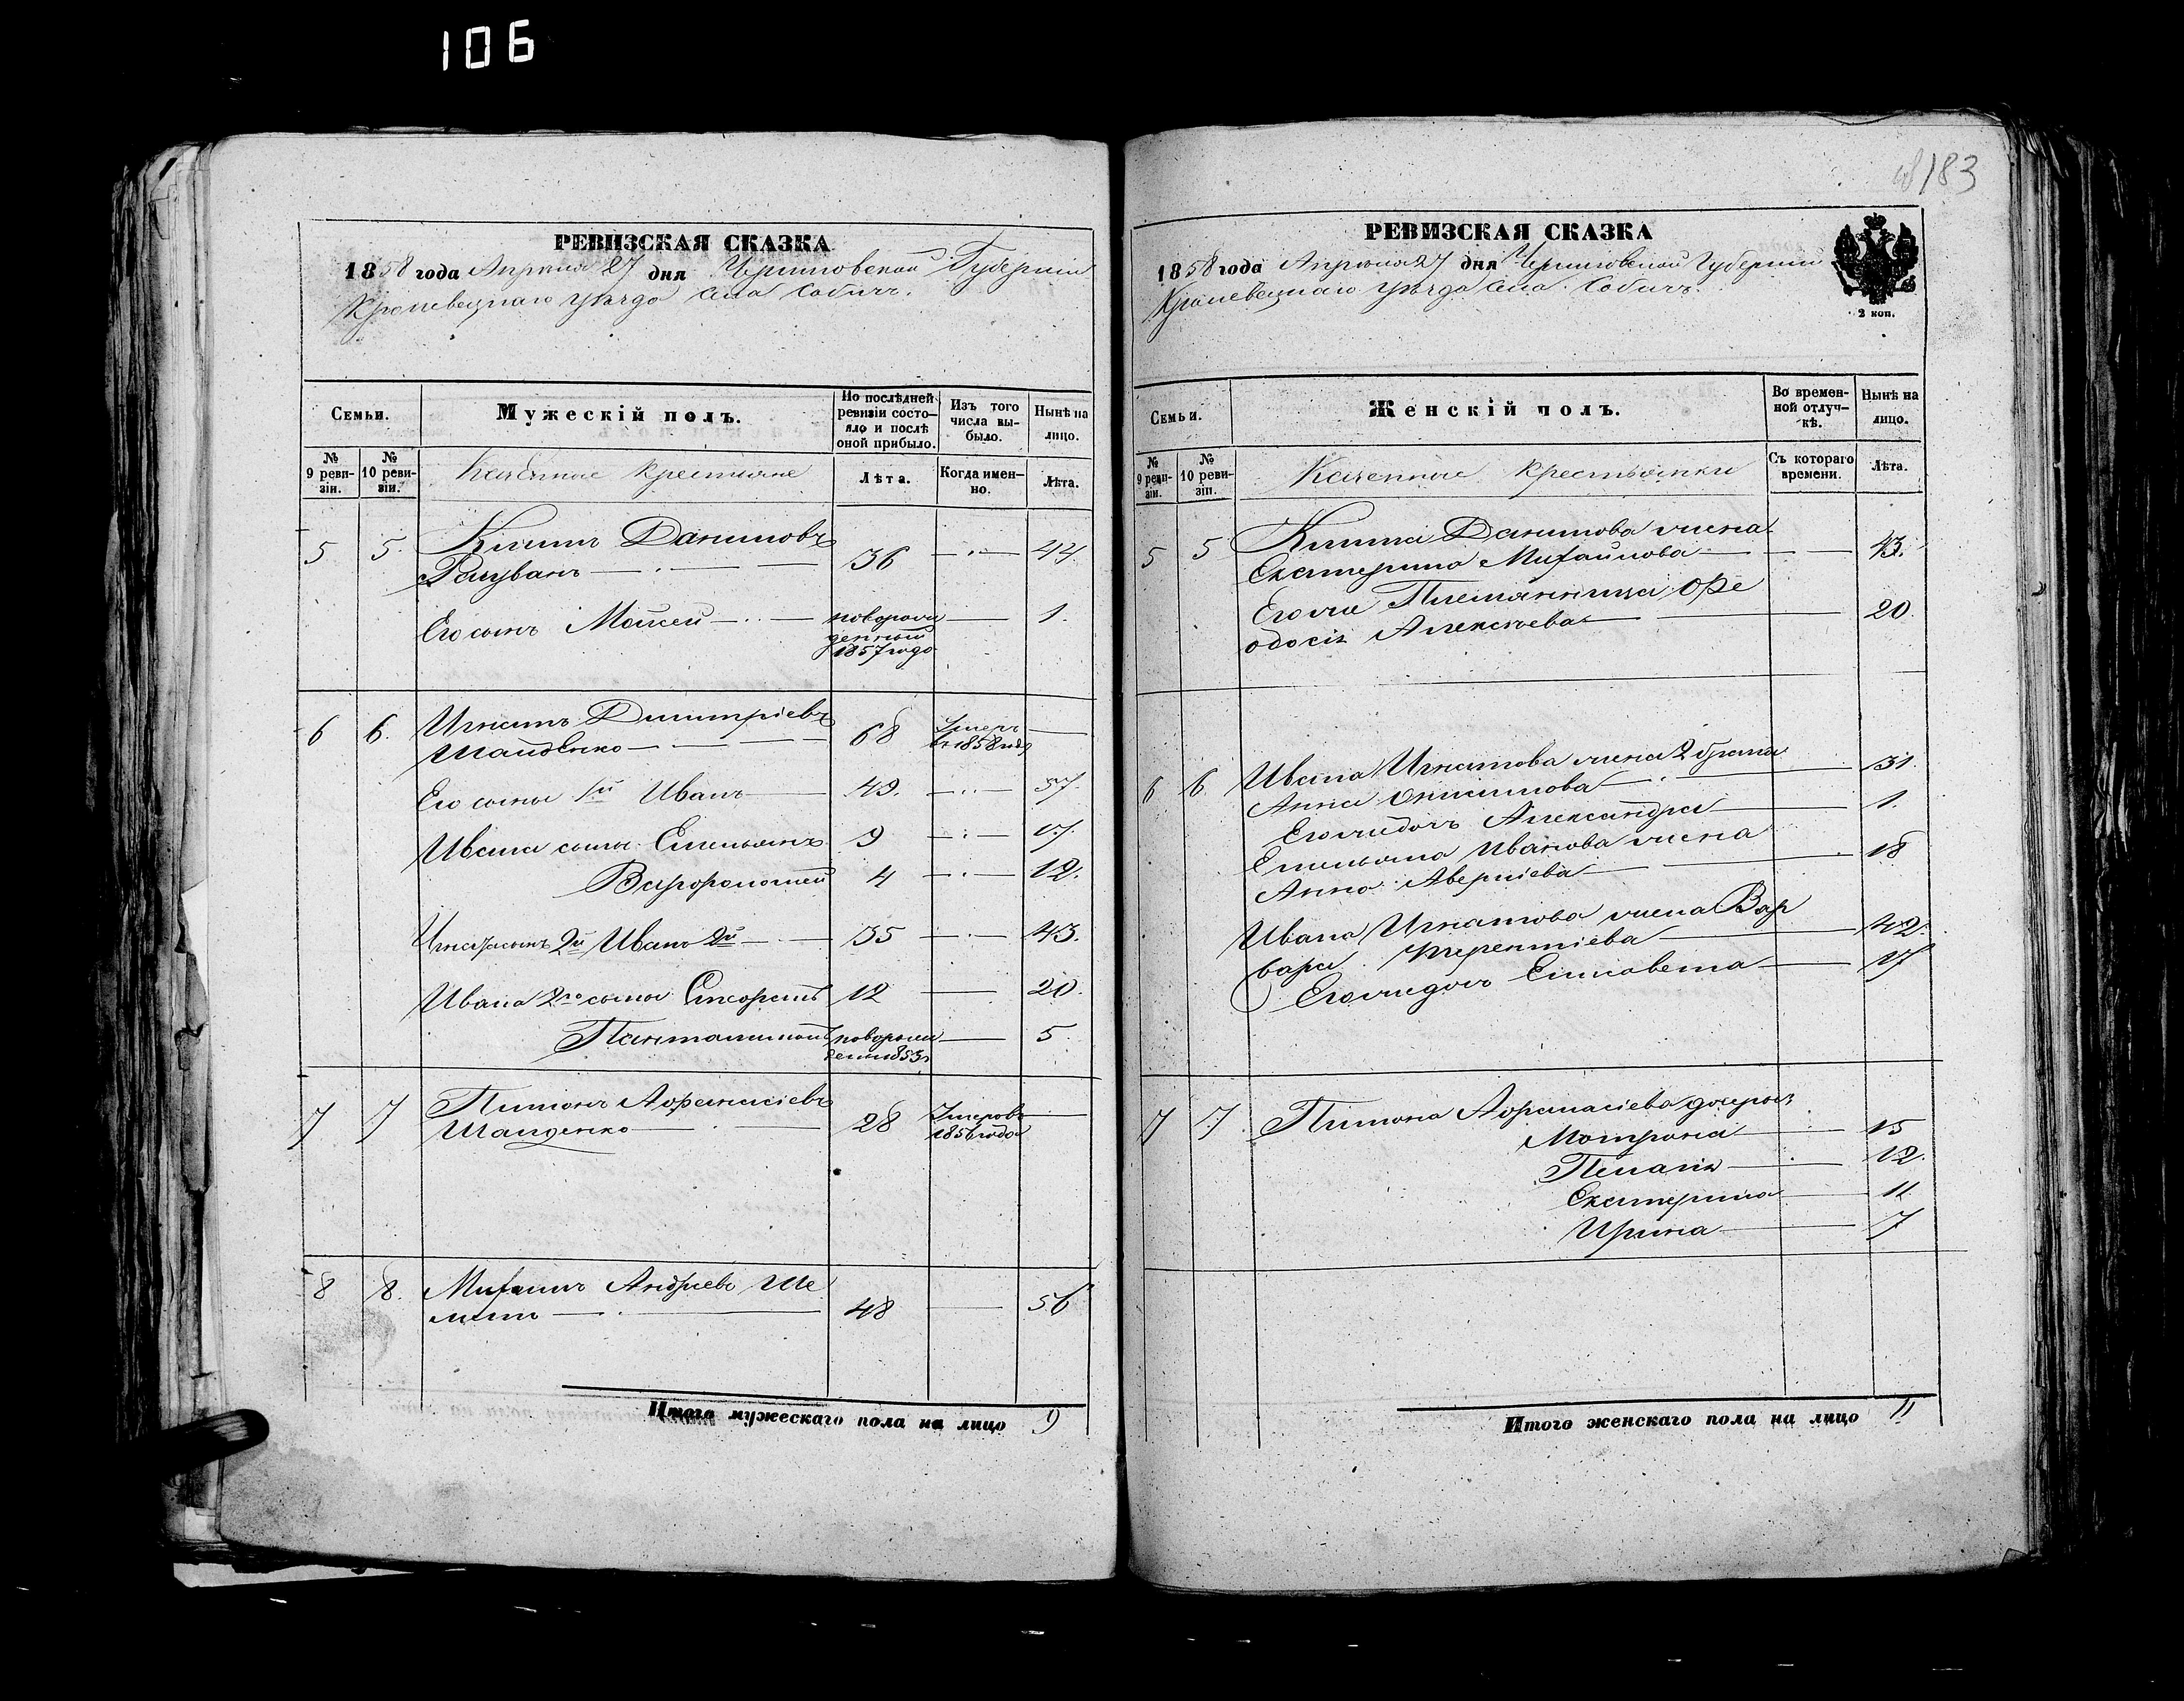 106
183
РЕВИЗСКАЯ СКАЗКА
1858 года Апреля 27 дня Черниговской Губернии
Кролевецкаго уѣзда села Собичъ.
Семьи.
Мужескій полъ.
По послѣдней ревизіи состояло и послѣ оной прибыло.
Изъ того числа выбыло.
Нынѣ на лицо.
№ 9 ревизіи.
№ 10 ревизіи.
Казенные крестьяне
Лѣта.
Когда именно.
Лѣта.
5 5. Даниловъ
36 44
Его сынъ Моисей новорож 1.
денный
1857 года
6 6. Игнатъ Димитріевъ 68 Умеръ
въ 1858 годѣ
Его сыны 1й Иванъ 49. 57.
Ивана сыны Емельянъ 9 17.
Варфоломей 4 12.
Игнат. сынъ 2й Иванъ 2й 35 43.
Ивана 2го сыны 12 20.
Пантелимонъ новорож 5
ден 1853
7 7 Афанасіевъ 28 Умеръ въ
Шайденко 1856 года
8 8. Михаилъ Андреевъ Ше
48 56
Итого мужескаго пола на лицо 9
РЕВИЗСКАЯ СКАЗКА
1858 года Апреля 27 дня Черниговской Губернии
Кролевецкаго уѣзда села Собичъ.
2 коп.
Семьи.
Женскій полъ.
Во временной отлучкѣ.
Нынѣ на лицо.
№ 9 ревизіи.
№ 10 ревизіи.
Казенные крестьянки
Съ котораго времени.
Лѣта.
5 5 Данилова жена
Екатерина Михайлова 43.
Его же Племянница Фе
одосія Алексѣева 20
6 6. Ивана Игнатова жена 2 брака
Анна Онисимова 31.
Его же дочь Александра 1.
Емельяна Иванова жена
Анна 18
Ивана Игнатова жена Вар
вара Терентіева 42.
Его же дочь Елисавета 17
7 7. Афанасіева дочери
Мотрона 15
Пелагія 12.
Екатерина 11
Ирина 7
Итого женскаго пола на лицо 11